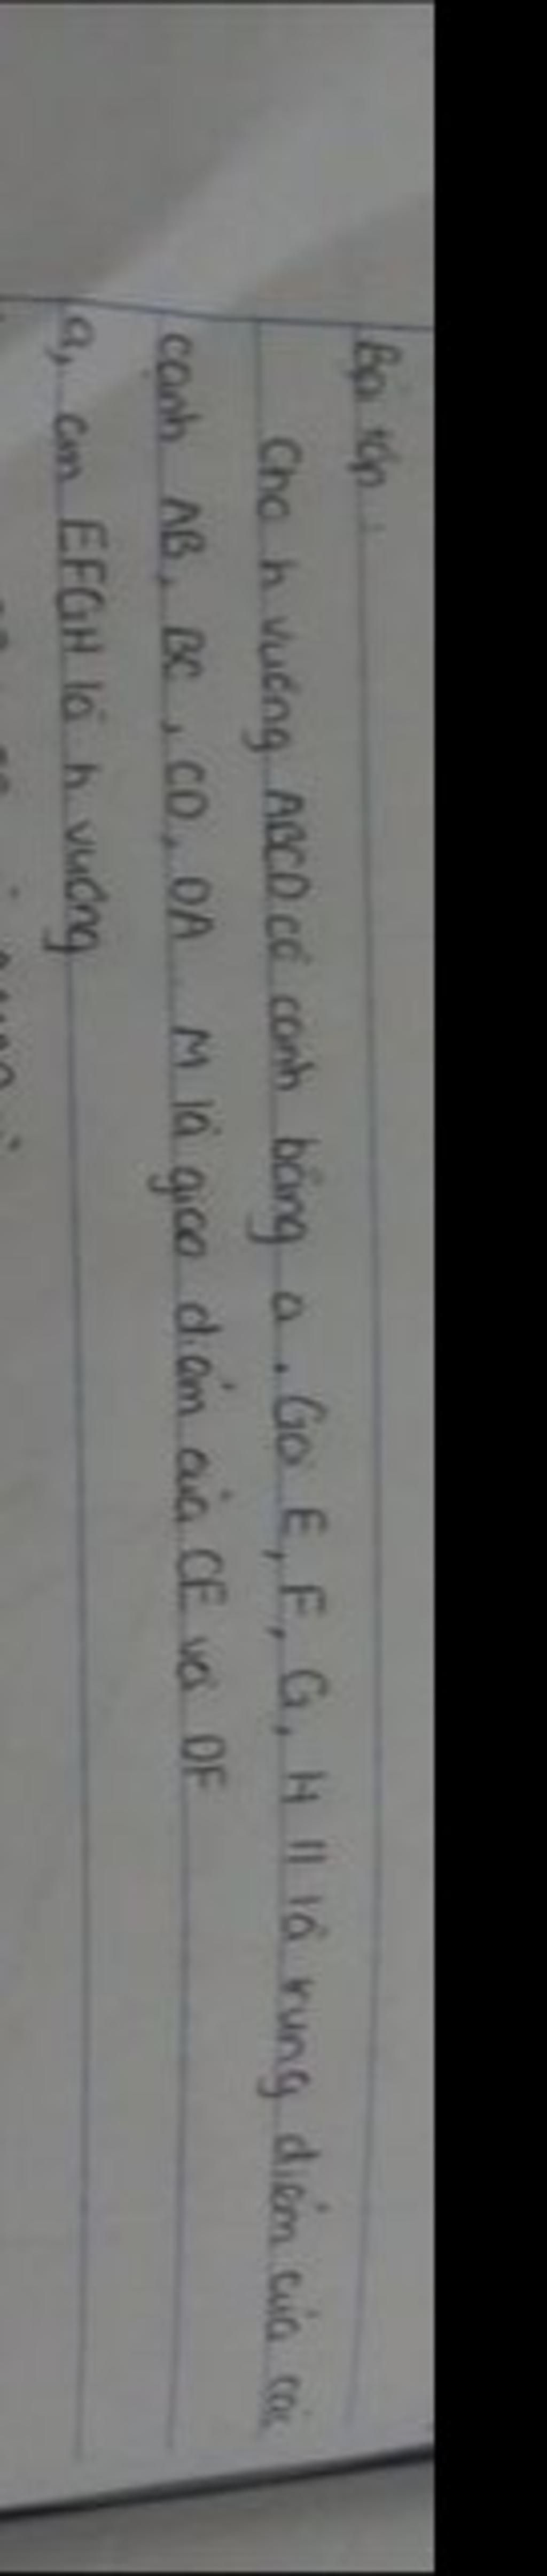 Bài tập:
Cho h vuông ABCD có cạnh bằng a. Gọi E, F, G, H ll là trung điểm của các
cạnh AB, BC, CD, DA. M là giao điểm của CE và DF
a, cm EFGH là h vuông